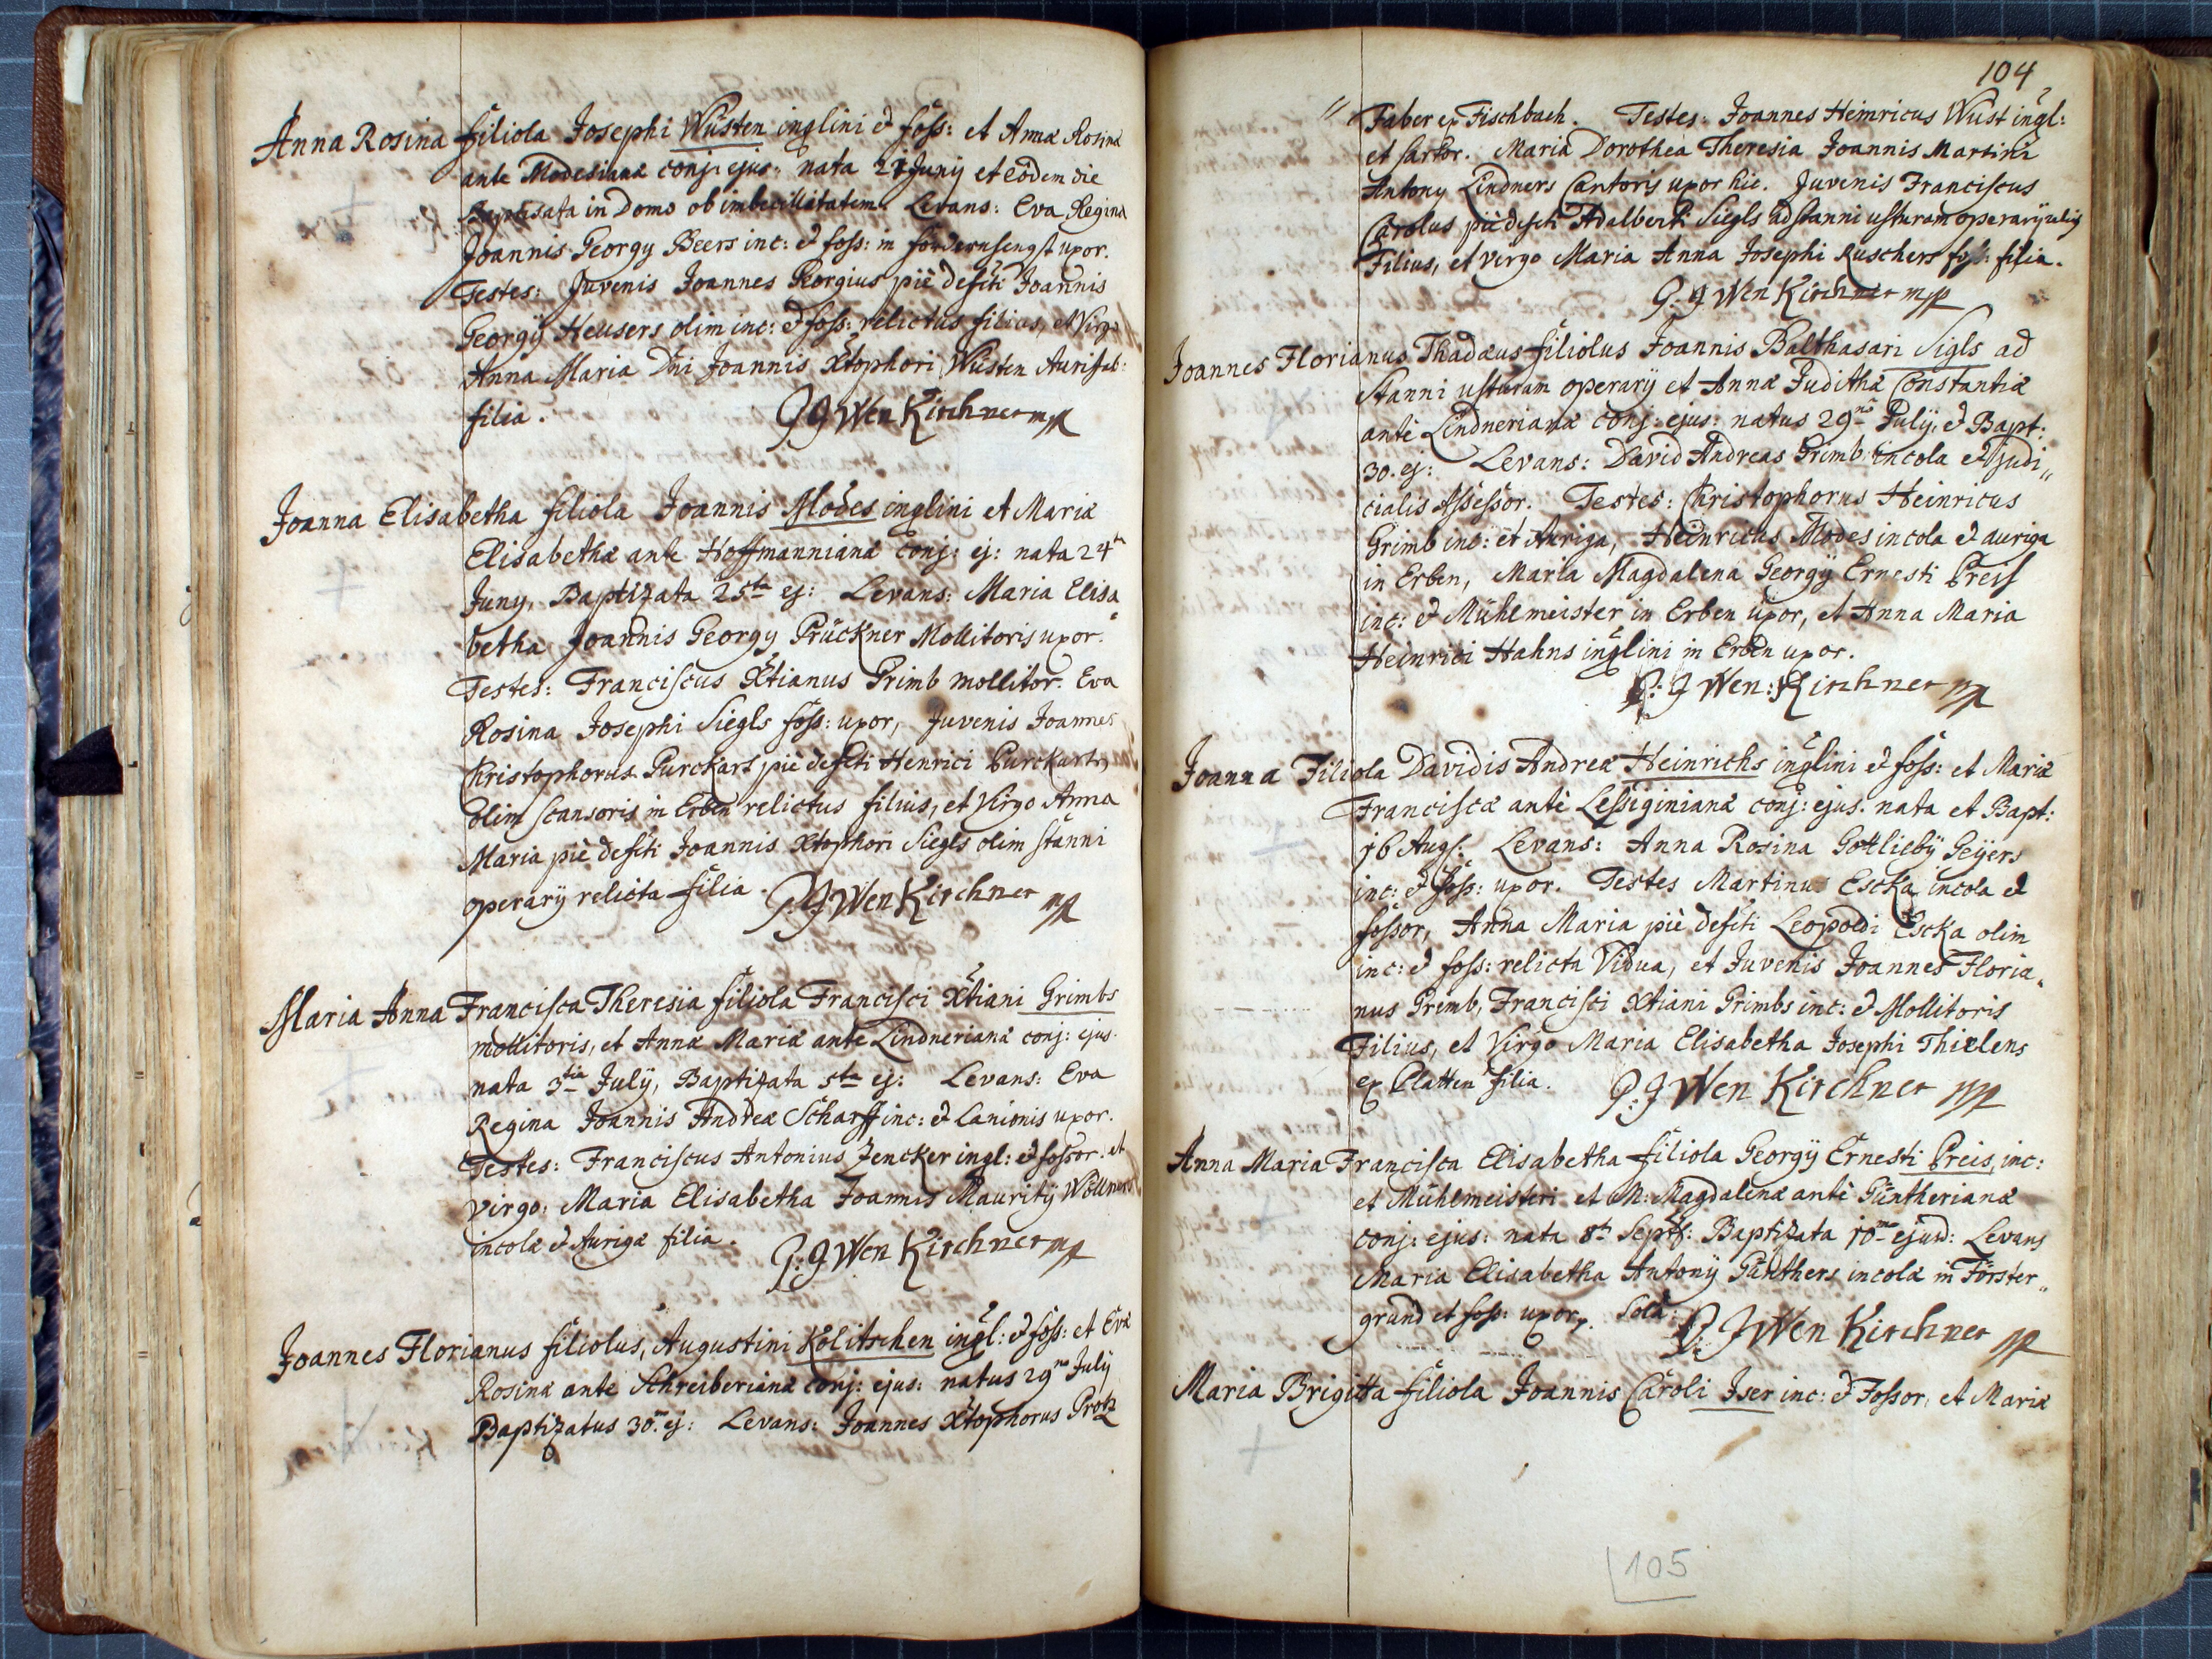 Anna Rosina filiola Josephi Wüsten inqlini et foss: et Annæ Rosinæ
ante Modesianæ conj: ejus: nata 21 Junij et eodem die
Baptisata in Domo ob imbecillitatem. Levans: Eva Regina
Joannis Georgy Beers inc: et foss: in fordernsengst uxor.
Testes: Juvenis Joannes Georgius piè defcti Joannis
Georgÿ Heusers olim inc: et foss: relictus filius, et Virgo
Anna Maria Dni Joannis Xtophori Wüsten Aurifab:
filia. P. J Wen Kirchner mp
Joanna Elisabetha filiola Joannis Modes inqlini et Mariæ
Elisabethæ ante Hoffmannianæ conj: ej: nata 24ta
Juny, Baptizata 25ta ej: Levans: Maria Elisa
betha Joannis Georgy Prückner Mollitoris uxor.
Testes: Franciscus Xtianus Grimb mollitor. Eva
Rosina Josephi Siegls foss: uxor, Juvenis Joannes
Christophorus Purckart piè defcti Henrici Purckarts
olim scansoris in Erben relictus filius, et Virgo Anna
Maria piè defcti Joannis Xtophori Siegls olim stanni
operarij relicta filia. P. J Wen Kirchner mp
Maria Anna Francisca Theresia filiola Francisci Xtiani Grimbs
mollitoris, et Annæ Mariæ ante Lindnerianæ conj: ejus.
nata 3tia Julÿ, Baptizata 5ta ej: Levans: Eva
Regina Joannis Andreæ Scharff inc: et Lanionis uxor.
Testes: Franciscus Antonius Zencker inql: et fossor: et
virgo: Maria Elisabetha Joannis Mauritÿ Wöllners
incolæ et Aurigæ filia. P: J Wen Kirchner mp
Joannes Florianus filiolus, Augustini Kölitschen inql: et foss: et Evæ
Rosinæ ante Schreiberianæ conj: ejus: natus 29no July
Baptizatus 30. ej: Levans: Joannes Xtophorus Protz
104
" Faber ex Fischbach. Testes: Joannes Heinricus Wüst inql:
et sartor. Maria Dorothea Theresia Joannis Martini
Antony Lindners Cantoris uxor hic. Juvenis Franciscus
Carolus piè defcti Adalberti Siegls ad stanni usturam operarÿ
Filius, et virgo Maria Anna Josephi Ruschers foss: filia.
P. J Wen Kirchner mp
Joannes Florianus Thadæus filiolus Joannis Balthasari Sigls ad
stanni usturam operarÿ et Annæ Judithæ Constantiæ
antè Lindnerianæ conj: ejus: natus 29no Julÿ, et Bapt:
30. ej: Levans: David Andreas Grimb incola et judi"
cialis Assessor. Testes: Christophorus Heinricus
Grimb inc: et Auriga, Heinricus Modes incola et auriga
in Erben, Maria Magdalena Georgÿ Ernesti Preis
inc: et Mühlmeister in Erben uxor, et Anna Maria
Heinrici Hahns inqlini in Erben uxor.
P: J Wen: Kirchner mp
Joanna Filiola Davidis Andreæ Heinrichs inqlini et foss: et Mariæ
Franciscæ antè Lessiginianæ conj: ejus. nata et Bapt:
16 Augs: Levans: Anna Rosina Gottliebÿ Geÿers
inc: et foss: uxor. Testes Martinus Escka incola et
fossor, Anna Maria piè defcti Leopoldi Escka olim
inc: et foss: relicta Vidua, et Juvenis Joannes Floria"
nus Grimb, Francisci Xtiani Grimbs inc: et Mollitoris
Filius, et Virgo Maria Elisabetha Josephi Thielens
ex Platten filia. P: J Wen Kirchner mp
Anna Maria Francisca Elisabetha filiola Georgÿ Ernesti Preis, inc:
et Mühlmeisteri et M: Magdalenæ antè Güntherianæ
conj: ejus: nata 8ta Septs: Baptizata 10ma ejusd: Levans
Maria Elisabetha Antonÿ Günthers incolæ in Förster"
grund et foss: uxor. Sola. P: J Wen Kirchner mp
Maria Brigitta filiola Joannis Caroli Iser inc: et Fossor, et Mariæ
105